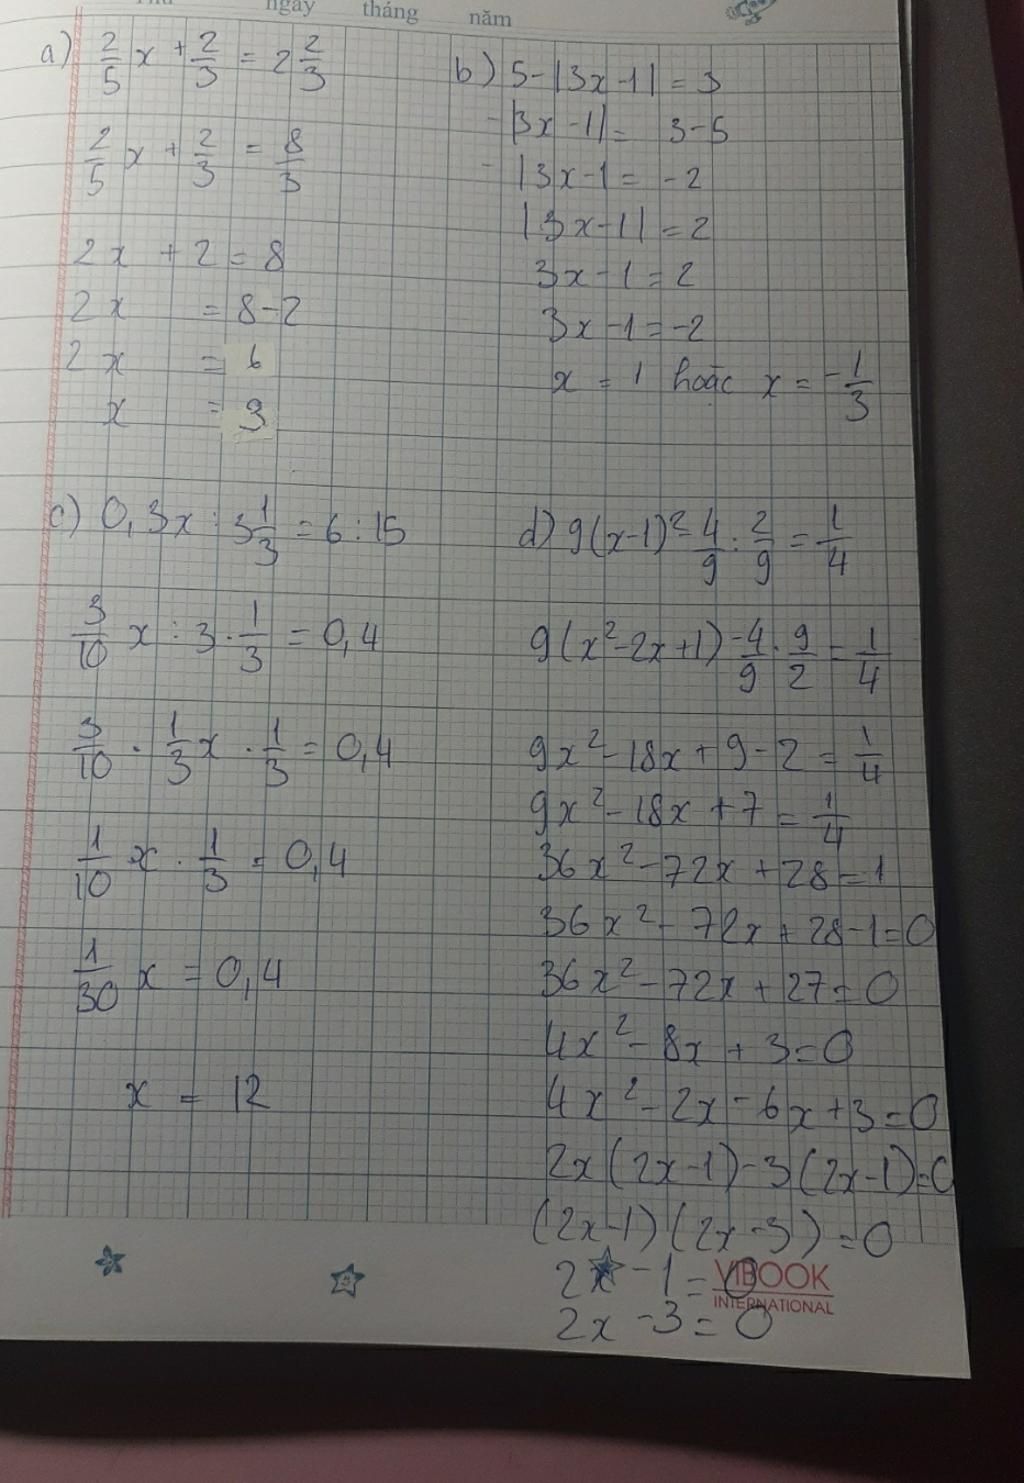 ngày tháng năm
a) 2/5 x + 2/3 = 2 2/3
2/5 x + 2/3 = 8/3
2x + 2 = 8
2x = 8-2
2x = 6
x = 3
b) 5-|3x-1| = 3
-|3x-1| = 3-5
-|3x-1 = -2
|3x-1| = 2
3x-1 = 2
3x-1 = -2
x = 1 hoặc x = -1/3
c) 0,3x : 3 1/3 = 6 : 15
3/10 x : 3 . 1/3 = 0,4
3/10 . 1/3 x . 1/3 = 0,4
1/10 x . 1/3 = 0,4
1/30 x = 0,4
x = 12
d) 9(x-1)² - 4/9 : 2/9 = 1/4
9(x²-2x+1) - 4/9 . 9/2 = 1/4
9x² - 18x + 9 - 2 = 1/4
9x² - 18x + 7 = 1/4
36x² - 72x + 28 = 1
36x² - 72x + 28 - 1 = 0
36x² - 72x + 27 = 0
4x² - 8x + 3 = 0
4x² - 2x - 6x + 3 = 0
2x(2x-1) - 3(2x-1) = 0
(2x-1)(2x-3) = 0
2x - 1 = 0
2x - 3 = 0
VIBOOK
INTERNATIONAL